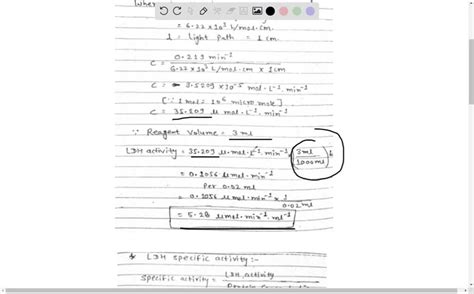 = 6.22 x 10³ L/mol.cm
l = Light path = 1 cm
C = 0.219 min⁻¹
6.22 x 10³ L/mol.cm x 1cm
C = 3.5209 x 10⁻⁵ mol.L⁻¹.min⁻¹
[∵ 1 mol = 10⁶ micro mole]
C = 35.209 μ mol.L⁻¹.min⁻¹
∵ Reagent Volume = 3ml
LDH activity = 35.209 μ.mol.L⁻¹.min⁻¹ x 3ml
1000ml
= 0.1056 μ mol.min⁻¹
Per 0.02 ml
= 0.1056 μ mol.min⁻¹ x 1
0.02ml
= 5.28 μmol.min⁻¹.ml⁻¹
* LDH specific activity :-
Specific activity = LDH activity